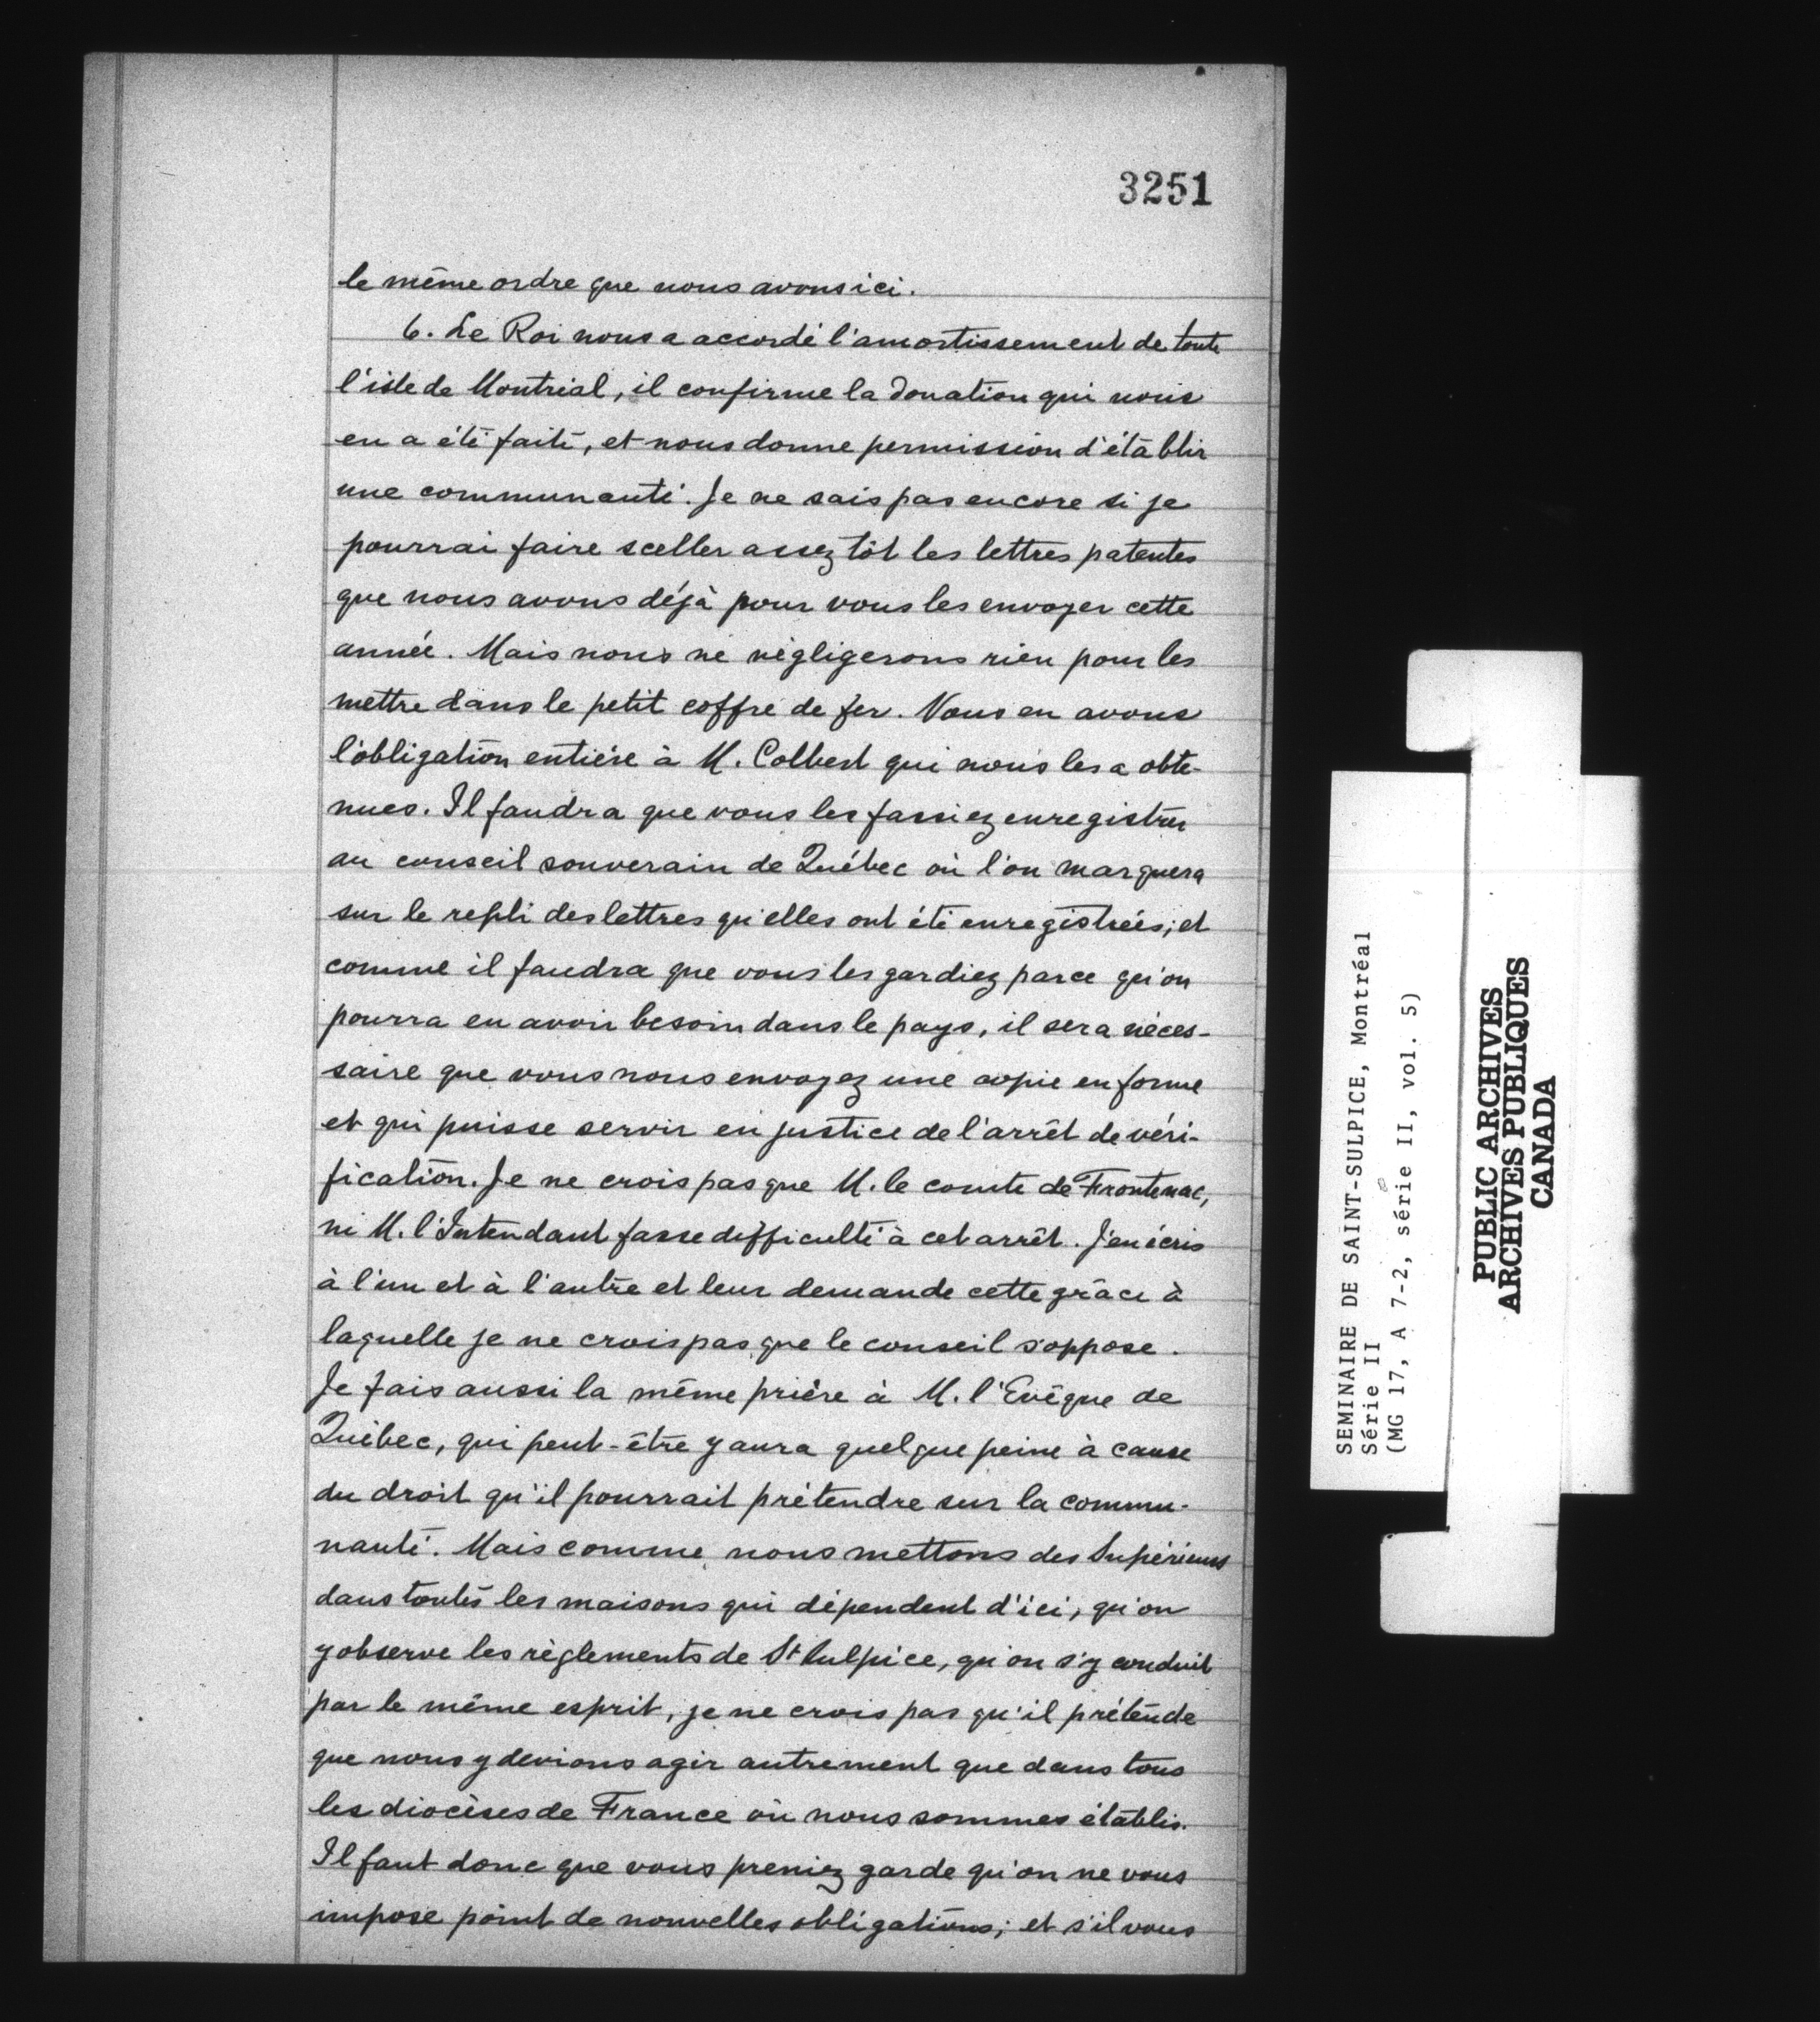 3251
le même ordre que nous avons ici.
6. Le Roi nous a accordé l'amortissement de toute
l'isle de Montréal, il confirme la donation qui nous
en a été faite, et nous donne permission d'établir
une communauté. Je ne sais pas encore si je
pourrai faire sceller assez tôt les lettres patentes
que nous avons déjà pour vous les envoyer cette
année. Mais nous ne négligerons rien pour les
mettre dans le petit coffre de fer. Nous en avons
l'obligation entière à M. Colbert qui nous les a obte-
nues. Il faudra que vous les fassiez enregistrer
au conseil souverain de Québec où l'on marquera
sur le repli des lettres qu'elles ont été enregistrées; et
comme il faudra que vous les gardiez parce qu'on
pourra en avoir besoin dans le pays, il sera néces-
saire que vous nous envoyez une copie en forme
et qui puisse servir en justice de l'arrêt de véri-
fication. Je ne crois pas que M. le comte de Frontenac,
ni M. l'Intendant fasse difficulté à cet arrêt. J'en écris
à l'un et à l'autre et leur demande cette grâce à
laquelle je ne crois pas que le conseil s'oppose.
Je fais aussi la même prière à M. l'Evêque de
Québec, qui peut-être y aura quelque peine à cause
du droit qu'il pourrait prétendre sur la commu-
nauté. Mais comme nous mettons des Supérieurs
dans toutes les maisons qui dépendent d'ici, qu'on
y observe les règlements de St Sulpice, qu'on s'y conduit
par le même esprit, je ne crois pas qu'il prétende
que nous y devions agir autrement que dans tous
les diocèses de France où nous sommes établis.
Il faut donc que vous preniez garde qu'on ne vous
impose point de nouvelles obligations; et s'il vous
SEMINAIRE DE SAINT-SULPICE, Montréal
Série II
(MG 17, A 7-2, série II, vol. 5)
PUBLIC ARCHIVES
ARCHIVES PUBLIQUES
CANADA